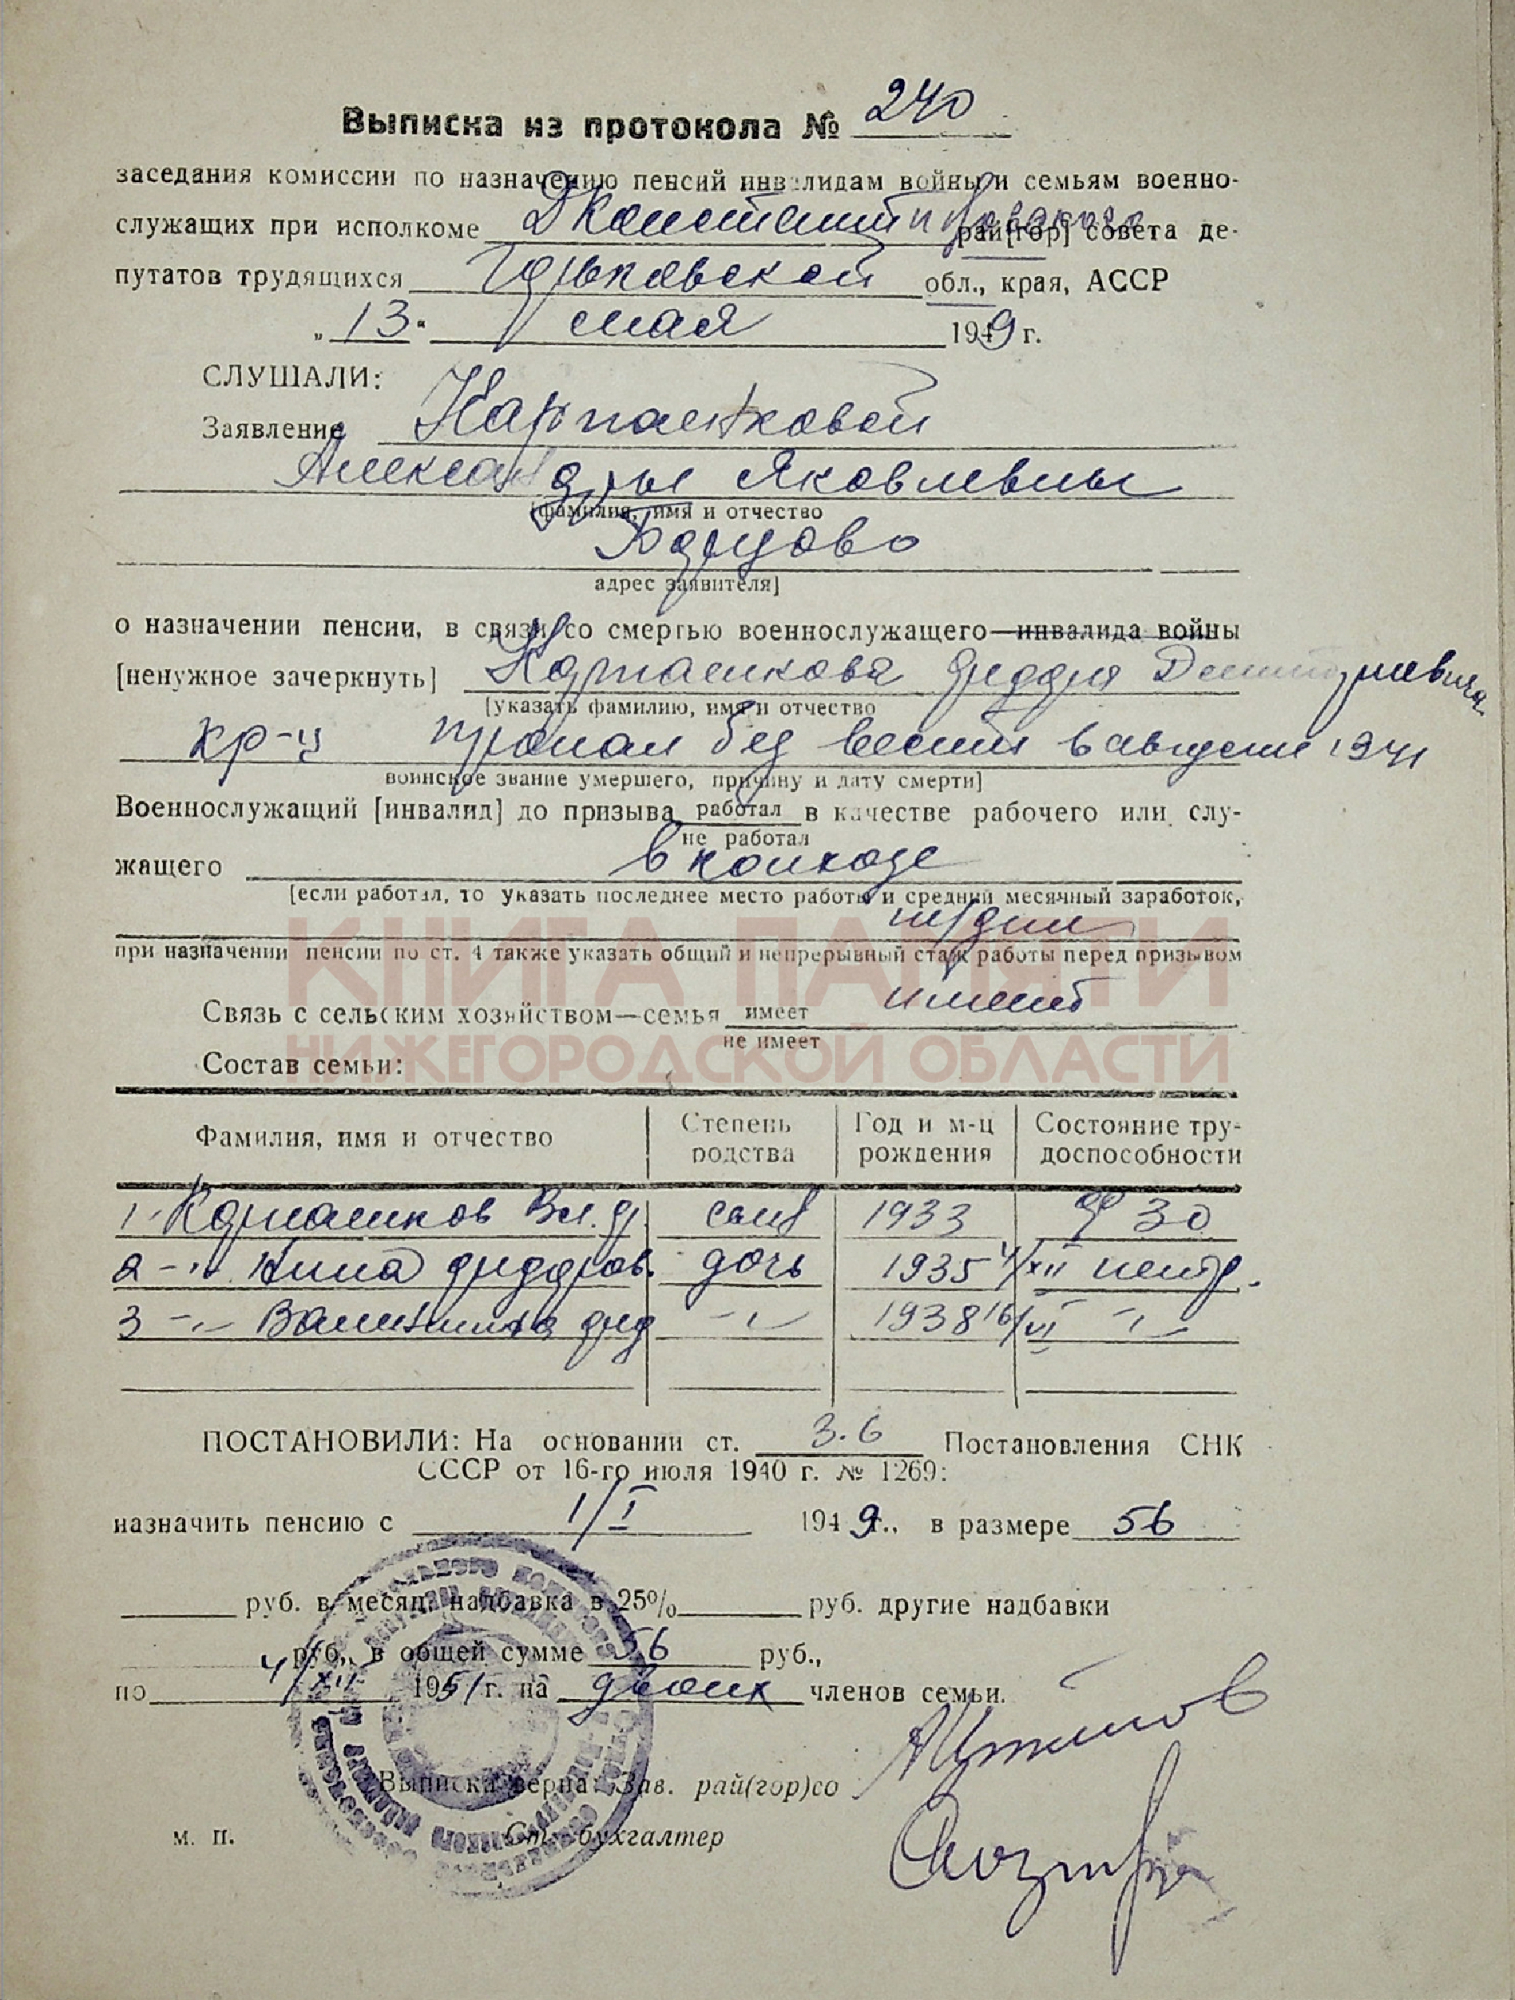 Выписка из протокола № 240
заседания комиссии по назначению пенсий инвалидам войны и семьям военно-
служащих при исполкоме ДКонстантиновского рай[гор] совета де-
путатов трудящихся Горьковской обл., края, АССР
„13" мая 1949 г.
СЛУШАЛИ:
Заявление Карпашковой
Александры Яковлевны
[фамилия, имя и отчество
адрес заявителя]
о назначении пенсии, в связи со смертью военнослужащего—инвалида войны
[ненужное зачеркнуть] Карпашкова Федора Дмитриевича
[указать фамилию, имя и отчество
кр-ц пропал без вести в августе 1941
воинское звание умершего, причину и дату смерти]
Военнослужащий [инвалид] до призыва работал в качестве рабочего или слу-
не работал
жащего в колхозе
[если работал, то указать последнее место работы и средний месячный заработок,
при назначении пенсии по ст. 4 также указать общий и непрерывный стаж работы перед призывом
КНИГА ПАМЯТИ
Связь с сельским хозяйством—семья имеет имеет
не имеет
НИЖЕГОРОДСКОЙ ОБЛАСТИ
Состав семьи:
Фамилия, имя и отчество Степень родства Год и м-ц рождения Состояние тру-доспособности
1. Карпашков Вл. Ф. сын 1933 30
2 -"- Нина Федоров. дочь 1935 4/XII нетр.
3 -"- Валентина Фед -"- 1938 16/VI -"-
ПОСТАНОВИЛИ: На основании ст. 3.6 Постановления СНК
СССР от 16-го июля 1940 г. № 1269:
назначить пенсию с 1/I 1949 г., в размере 56
руб. в месяц, надбавка в 25% руб. другие надбавки
руб., в общей сумме 56 руб.,
по 4/XII 1951 г. на двоих членов семьи.
Выписка верна: Зав. рай(гор)со
м. п. Ст. бухгалтер